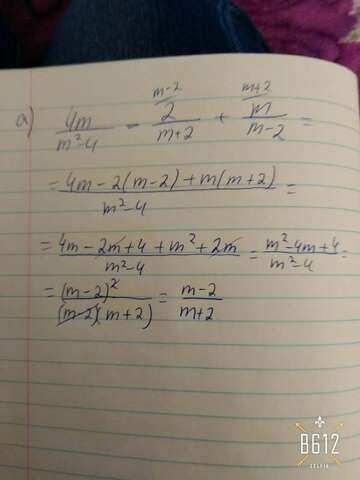 a) 4m/m²-4 - m-2 2/m+2 + m+2 m/m-2 =
= 4m-2(m-2)+m(m+2)/m²-4 =
= 4m-2m+4+m²+2m/m²-4 = m²-4m+4/m²-4 =
= (m-2)²/(m-2)(m+2) = m-2/m+2
B612
SELFIE